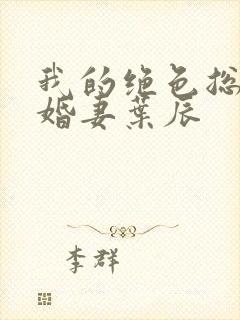 我的绝色总
婚妻葉辰
李群